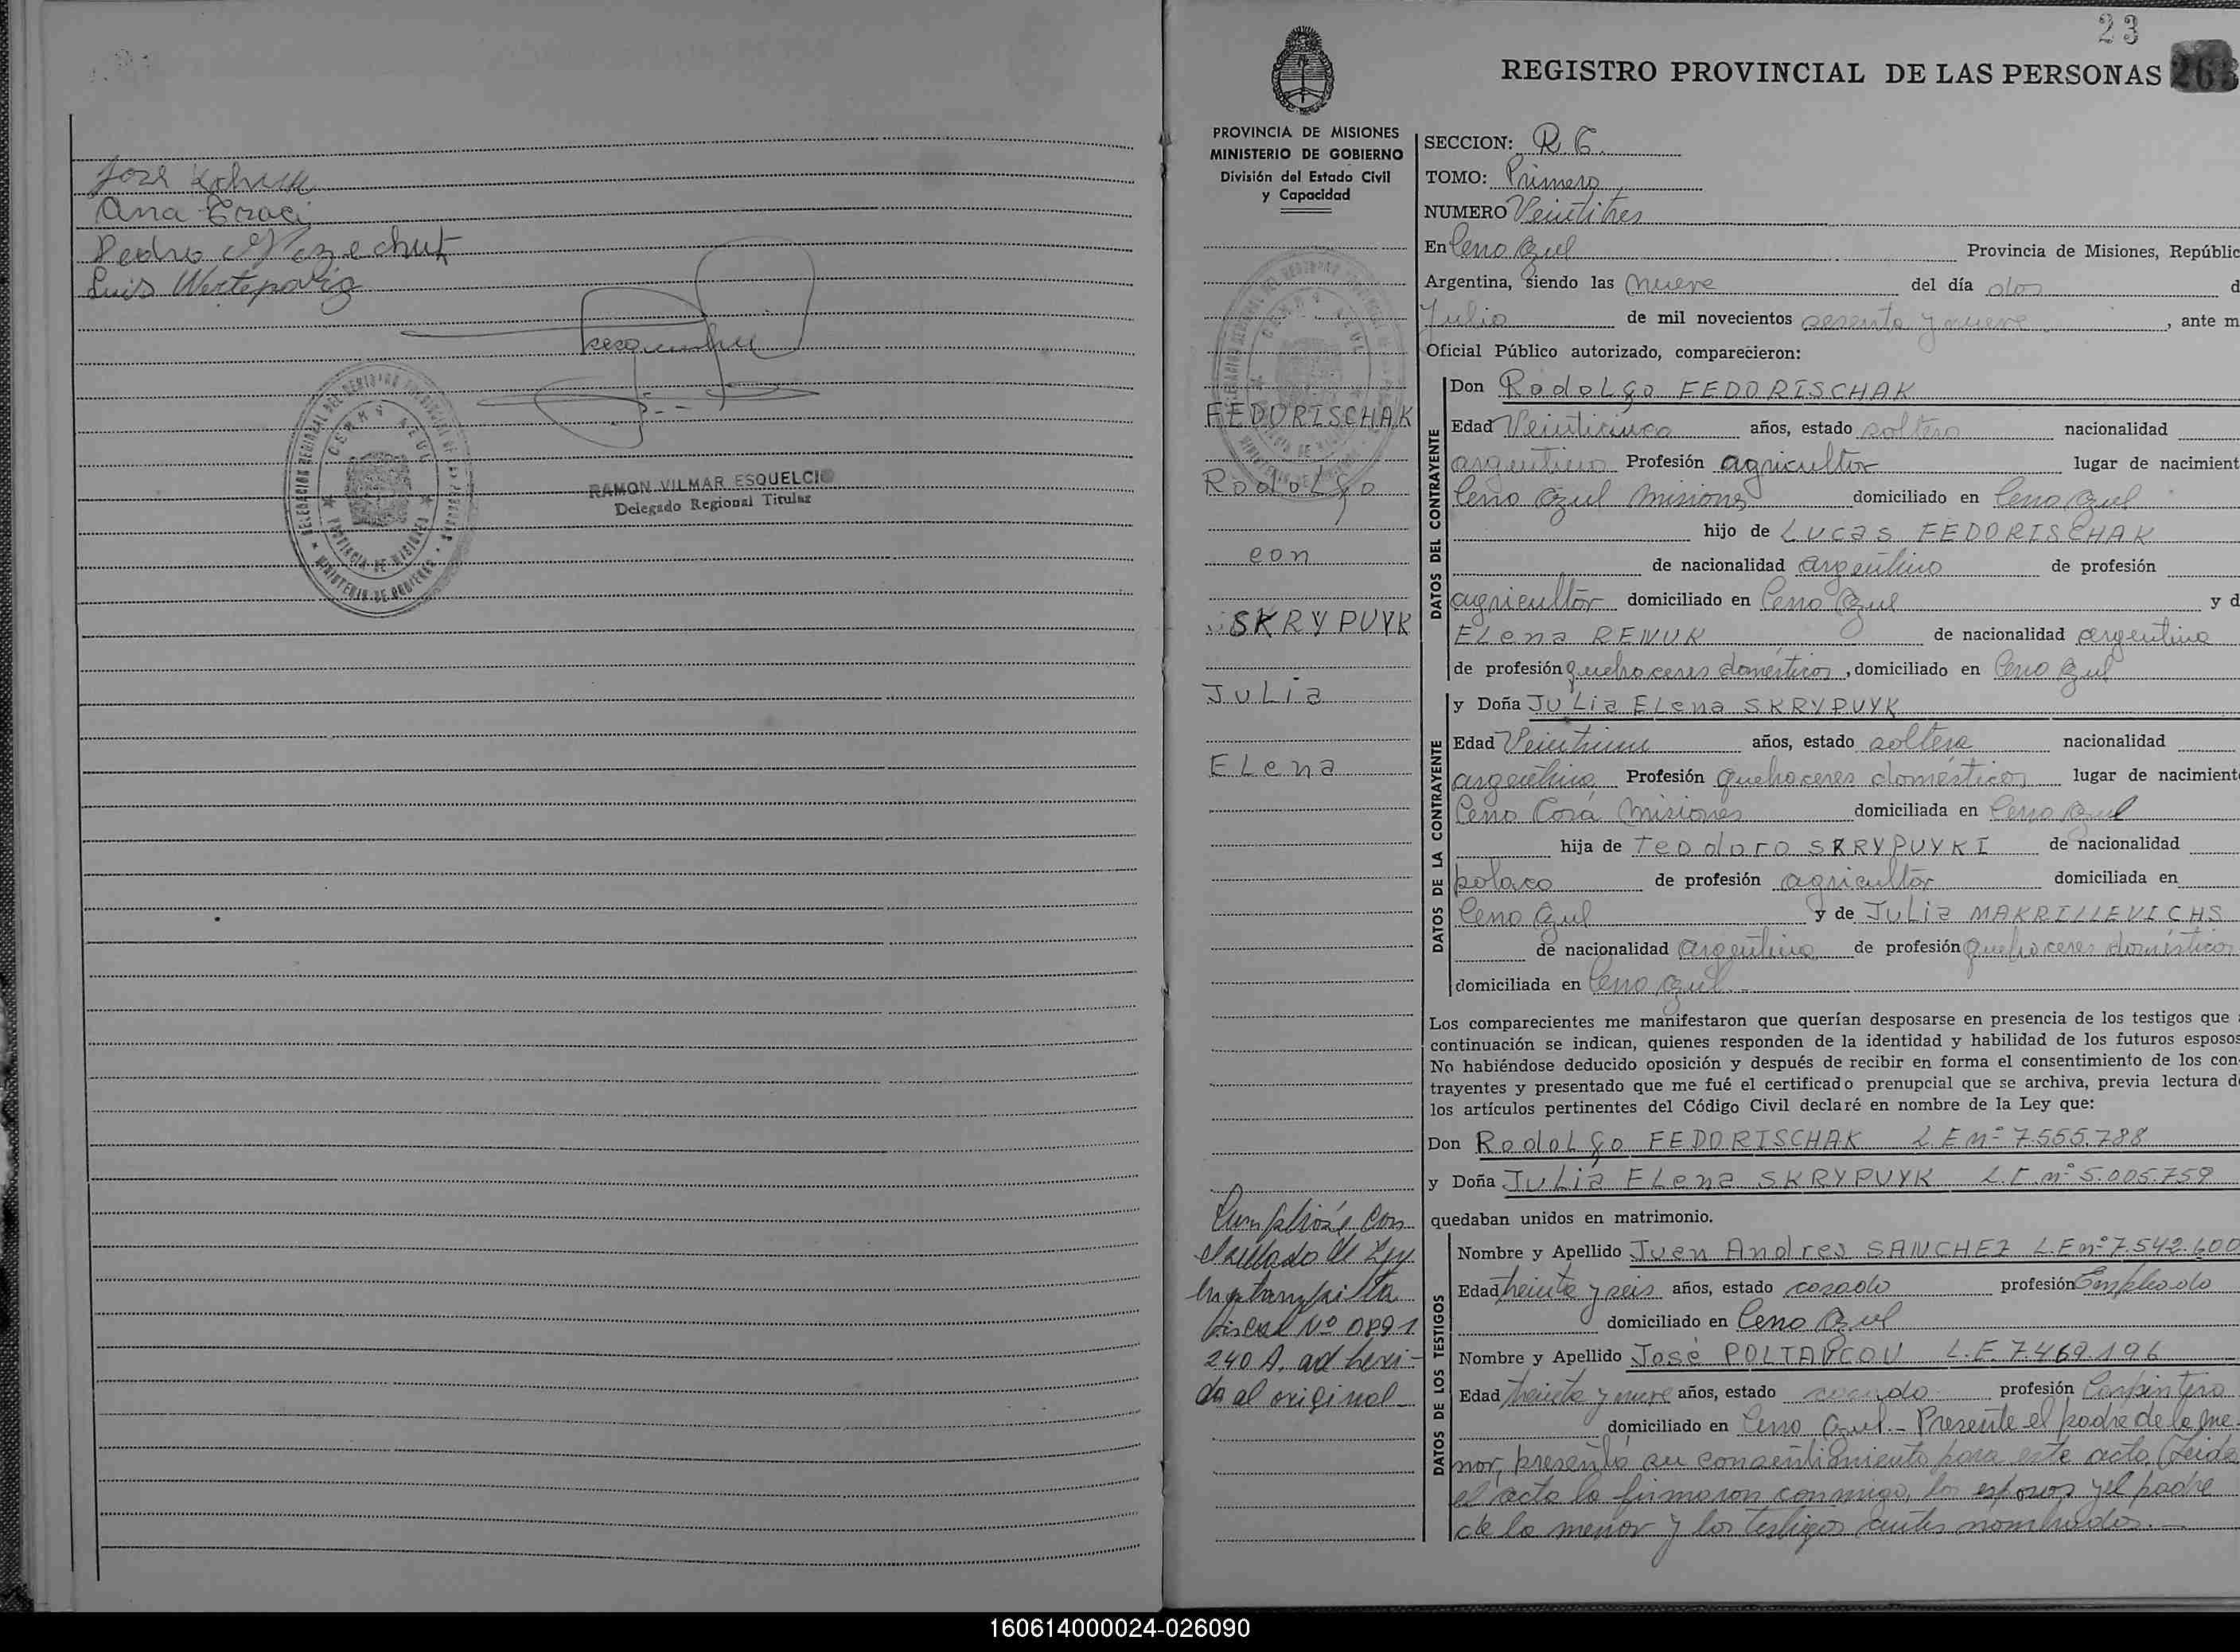 José
Ana
Pedro
Luis
RAMON VILMAR ESQUELCIO
Delegado Regional Titular
23
REGISTRO PROVINCIAL DE LAS PERSONAS
PROVINCIA DE MISIONES
MINISTERIO DE GOBIERNO
División del Estado Civil
y Capacidad
FEDORISCHAK
Rodolfo
con
SKRYPUYK
Julia
Elena
Cumplióse con
el sellado de Ley
fiscal Nº 0891
240 A. adheri-
da al original
SECCION: R. C.
TOMO: Primero
NUMERO Veintitres
En Cerro Azul Provincia de Misiones, Repúblic
Argentina, siendo las nueve del día dos d
Julio de mil novecientos sesenta y nueve, ante m
Oficial Público autorizado, comparecieron:
DATOS DEL CONTRAYENTE
Don Rodolfo FEDORISCHAK
Edad Veinticinco años, estado soltero nacionalidad
argentino Profesión agricultor lugar de nacimient
Cerro Azul Misiones domiciliado en Cerro Azul
hijo de Lucas FEDORISCHAK
de nacionalidad argentino de profesión
agricultor domiciliado en Cerro Azul y d
Elena RENUK de nacionalidad argentina
de profesión quehaceres domésticos, domiciliado en Cerro Azul
DATOS DE LA CONTRAYENTE
y Doña Julia Elena SKRYPUYK
Edad Veintiun años, estado soltera nacionalidad
argentina Profesión quehaceres domésticos lugar de nacimient
Cerro Corá Misiones domiciliada en Cerro Azul
hija de Teodoro SKRYPUYKI de nacionalidad
polaco de profesión agricultor domiciliada en
Cerro Azul y de Julia MAKRILLEVICHS
de nacionalidad argentina de profesión quehaceres domésticos
domiciliada en Cerro Azul.-
Los comparecientes me manifestaron que querían desposarse en presencia de los testigos que
continuación se indican, quienes responden de la identidad y habilidad de los futuros esposos
No habiéndose deducido oposición y después de recibir en forma el consentimiento de los con-
trayentes y presentado que me fué el certificado prenupcial que se archiva, previa lectura d
los artículos pertinentes del Código Civil declaré en nombre de la Ley que:
Don Rodolfo FEDORISCHAK L.E nº 7.555.788
y Doña Julia Elena SKRYPUYK L.C. nº 5.005.759
quedaban unidos en matrimonio.
DATOS DE LOS TESTIGOS
Nombre y Apellido Juan Andres SANCHEZ L.E nº 7.542.600
Edad treinta y seis años, estado casado profesión Empleado
domiciliado en Cerro Azul
Nombre y Apellido José POLTAVCOV L.E. 7.469.196
Edad treinta y nueve años, estado casado profesión Carpintero
domiciliado en Cerro Azul.- Presente el padre de la me-
nor, presentó su consentimiento para este acto. Leida
el acta la firmaron conmigo, los esposos y el padre
de la menor y los testigos antes nombrados.-
160614000024-026090